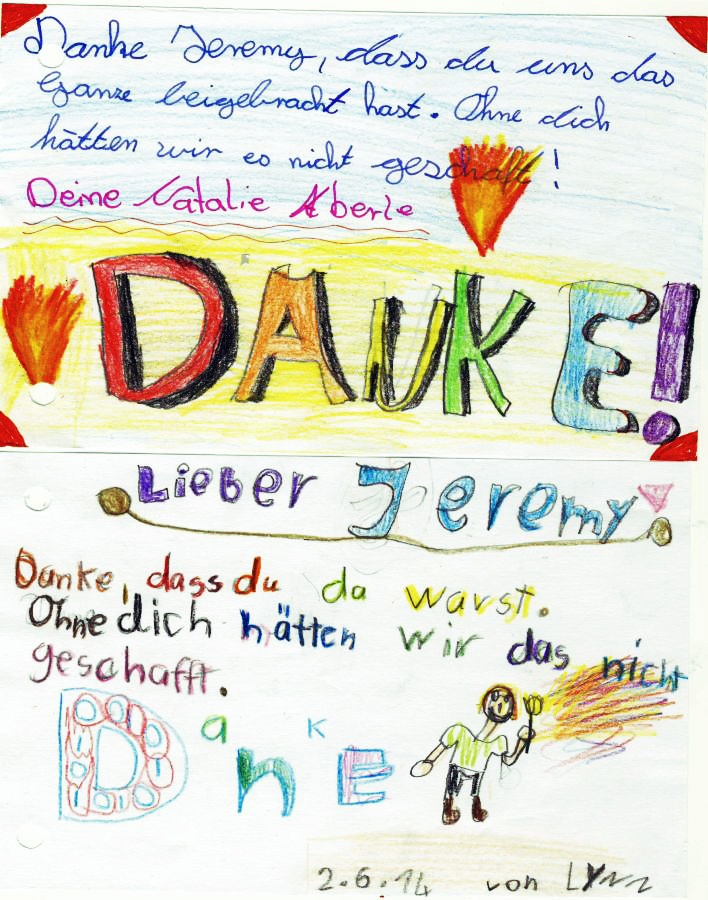 Danke Jeremy, dass du uns das
Ganze beigebracht hast. Ohne dich
hätten wir es nicht geschafft!
Deine Natalie Aberle
DANKE!
Lieber Jeremy
Danke, dass du da warst.
Ohne dich hätten wir das nicht
geschafft.
DanKE
2.6.14 von Lynn